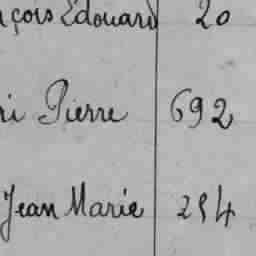 çois Edouard 20
ri Pierre 692
Jean Marie 254